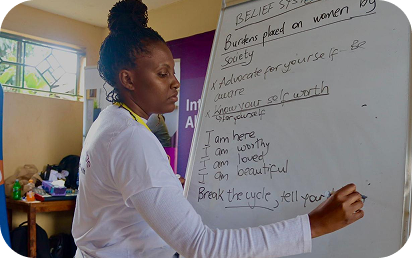 BELIEF SYSTE
Burdens placed on women by
society
x Advocate for yourself - Be
aware
x Know your self worth
for yourself
I am here
I am worthy
I am loved
I am beautiful
Break the cycle, tell your
Int
Al